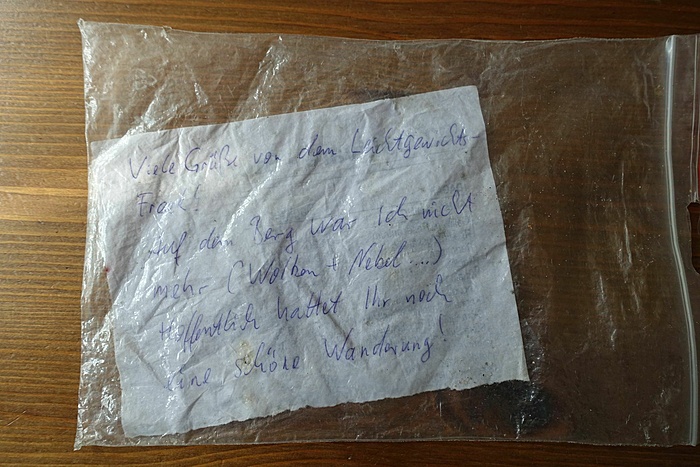 Viele Grüße von dem Leichtgewichts-
Freak!
Auf dem Berg war ich nicht
mehr (Wolken + Nebel...)
Hoffentlich hattet Ihr noch
eine schöne Wanderung!